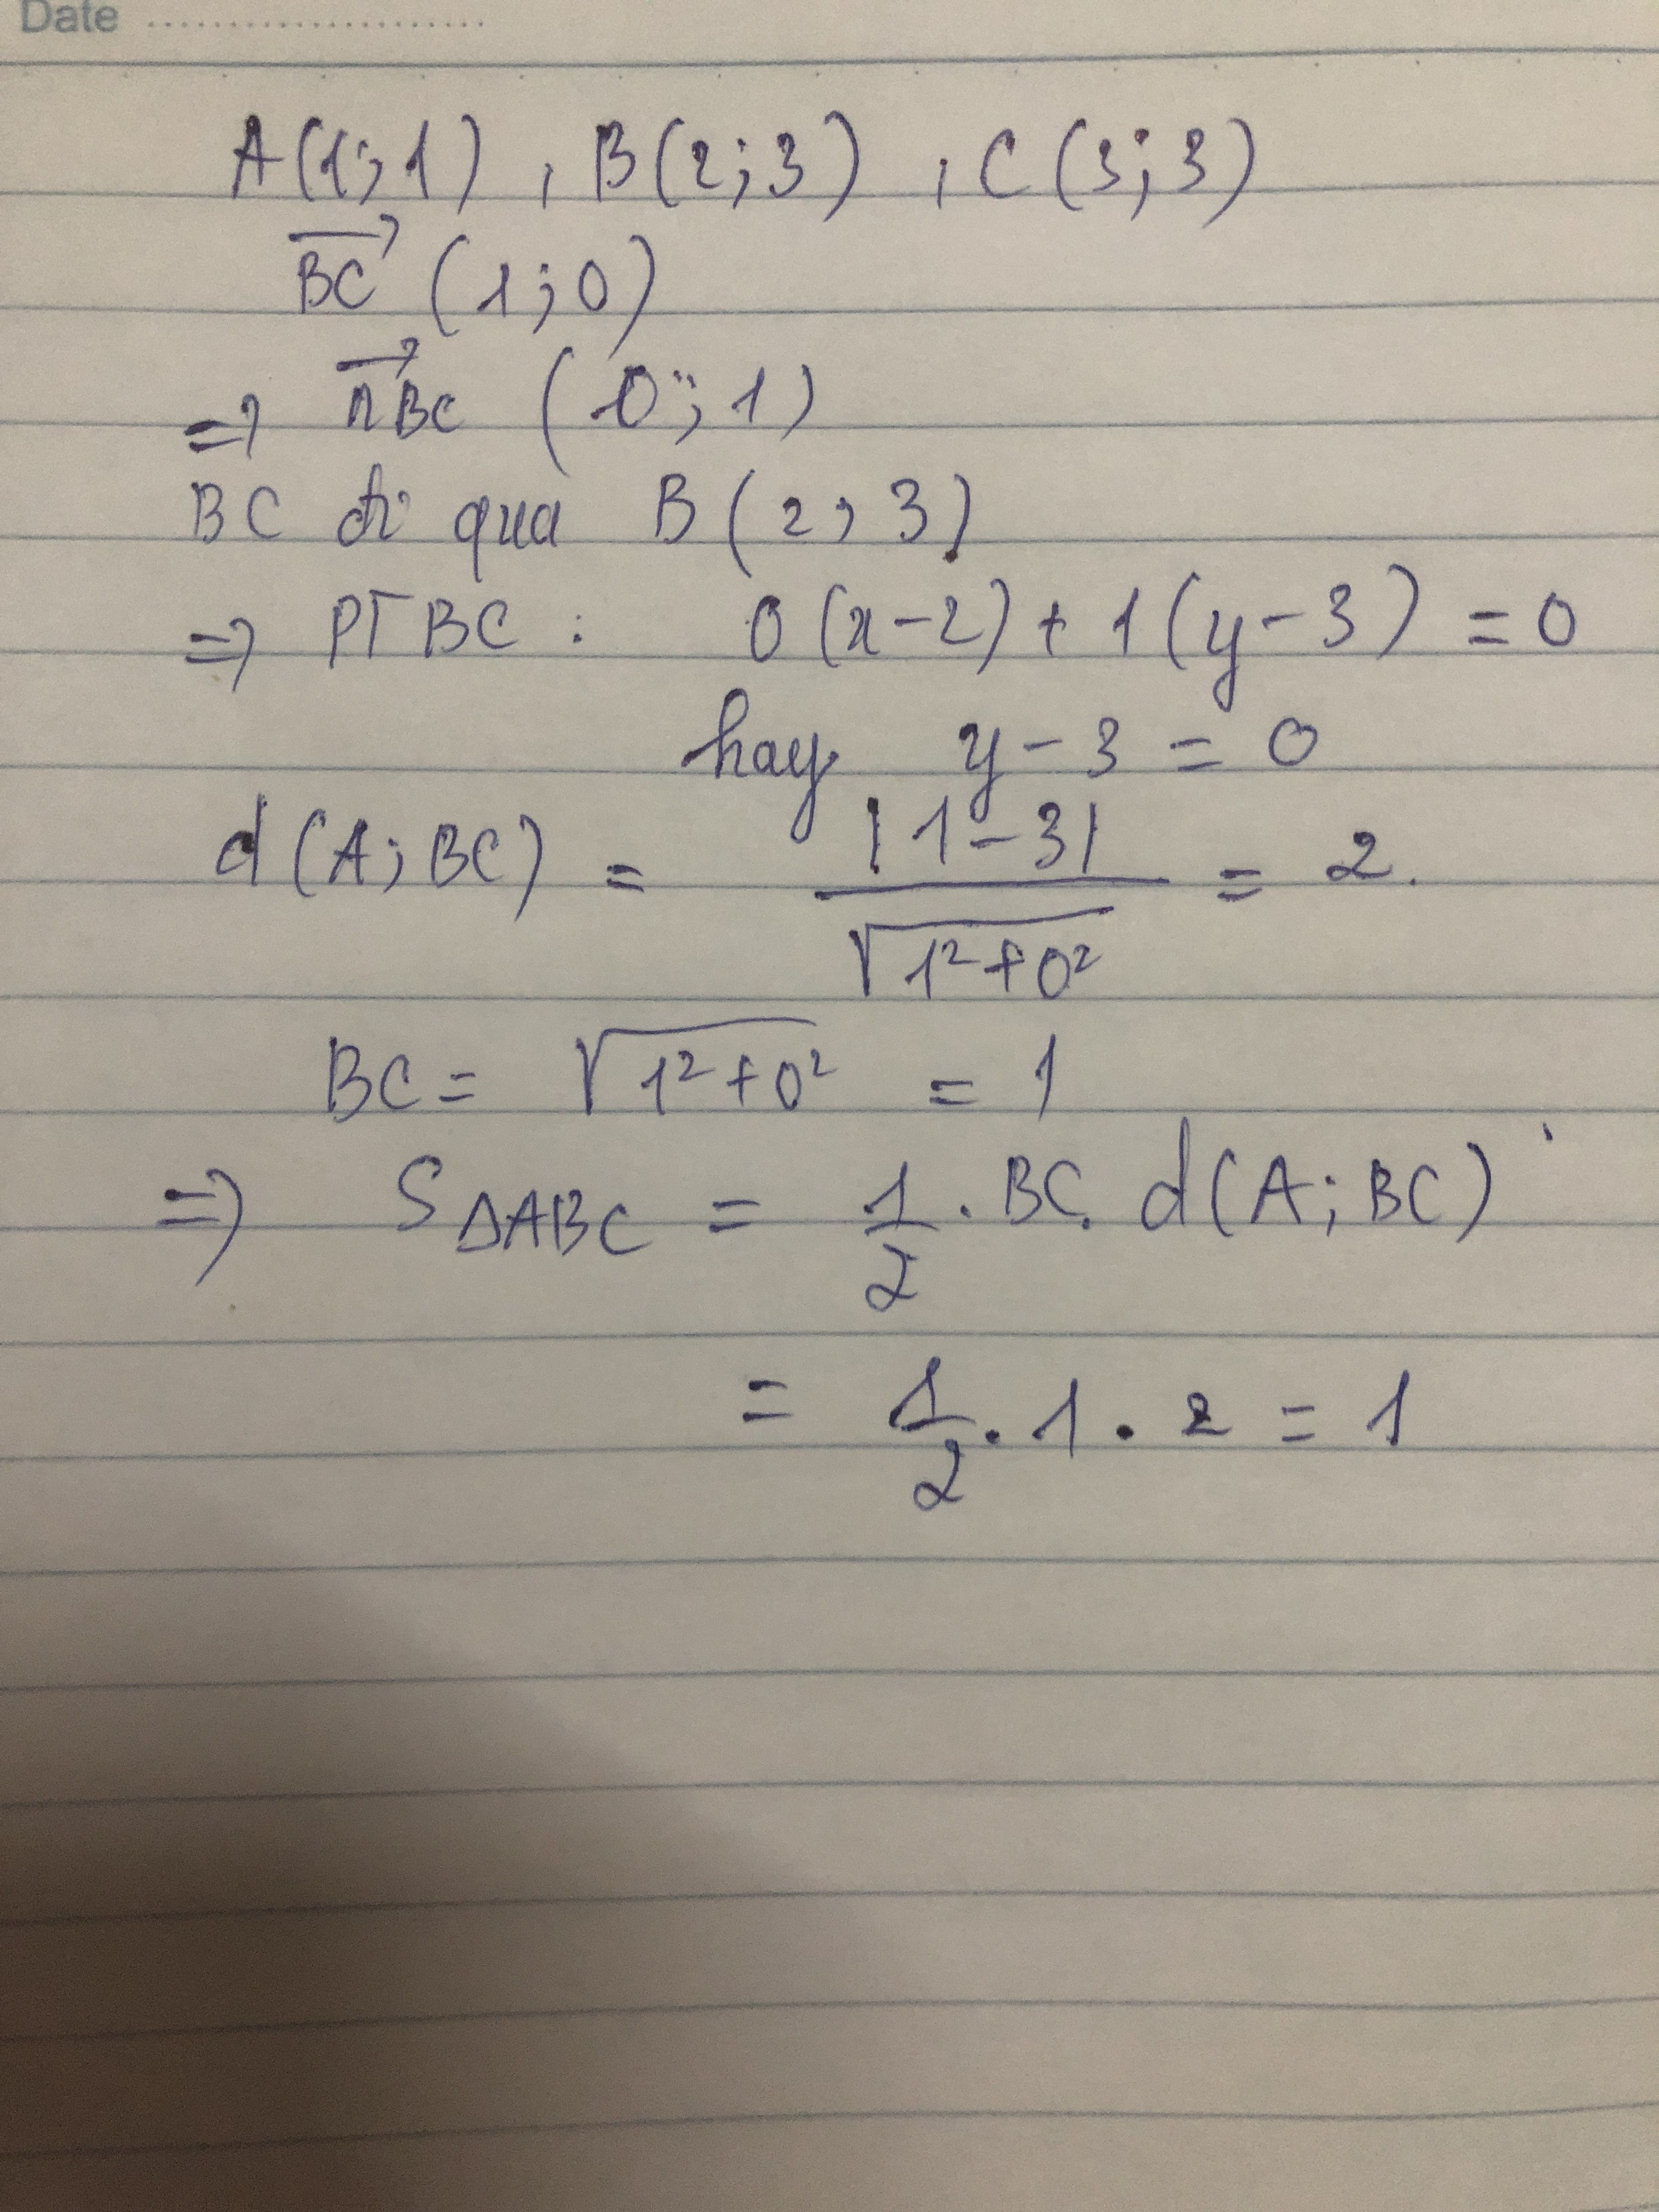 Date ........................
A(1;1) , B(2;3) , C(3;3)
\overrightarrow{BC} (1;0)
=> \overrightarrow{n}BC (0;1)
BC đi qua B(2,3)
=> PT BC : 0(x-2)+1(y-3)=0
hay y-3=0
d(A;BC) = \frac{|1-3|}{\sqrt{1²+0²}} = 2.
BC = \sqrt{1²+0²} = 1
=> S_{ΔABC} = \frac{1}{2}.BC.d(A;BC)
= \frac{1}{2}.1.2=1